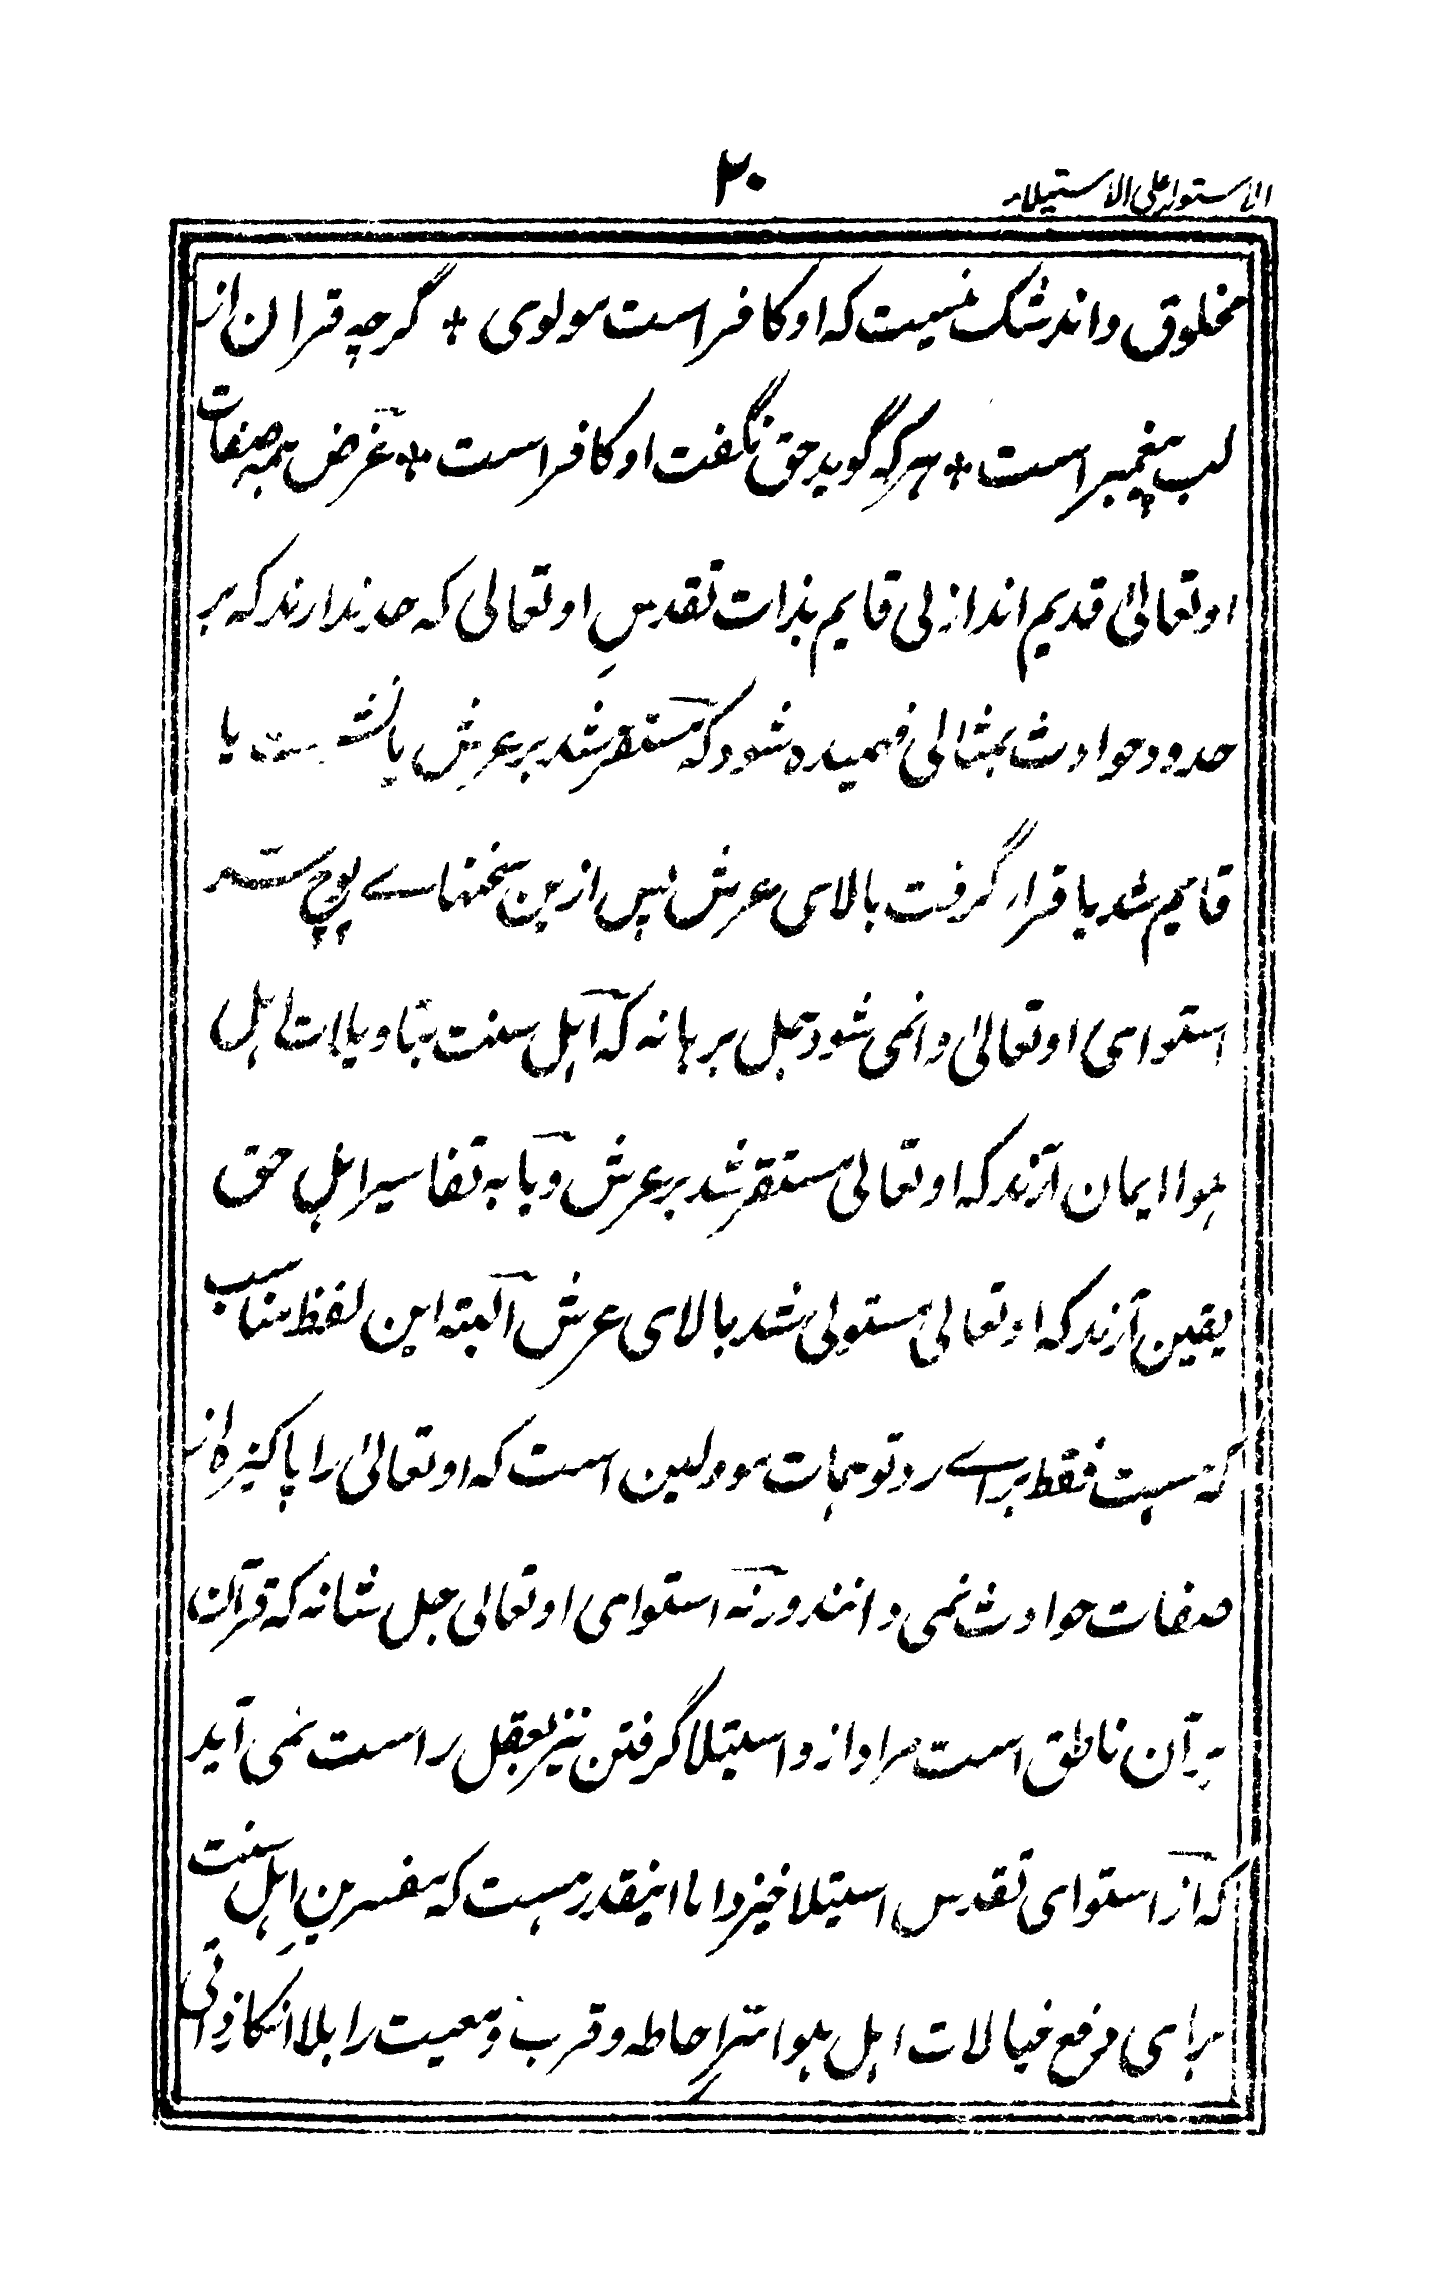 الاستواء علی الاستیلاء
۲۰
مخلوق داند شک نیست که او کافر است مولوی * گرچه قران از
لب پیغمبر است * هر که گوید حق نگفت او کافر است * غرض همه صفات
او تعالیٰ قدیم اند ازلی قایم بذات تقدسِ او تعالی که حد ندارند که بر
حدود حوادث بمثالی فهمیده شود که مستقر شد بر عرش یا نشست یا
قایم شد یا قرار گرفت بالای عرش پس ازین سخنهاے پوچ ستر
استوای او تعالیٰ وا نمی شود جل برهانه که اهل سنت بتاویلات اهل
هوا ایمان آرند که او تعالی مستقر شد بر عرش و یا به تفاسیر اهل حق
یقین آرند که او تعالی مستولی شد بالای عرش البته این لفظ مناسب
که هست فقط براے رد توهمات مودلین است که او تعالیٰ را پاکیزه از
صفات حوادث نمی دانند ورنه استوای او تعالی جل شانه که قرآن
بر آن ناطق است مراد ازو استیلا گرفتن نیز بعقل راست نمی آید
که از استوای تقدس استیلا خیزد اما اینقدر هست که مفسرینِ اهل سنت
برای دفع خیالات اهل هوا سرِ احاطه و قرب و معیت را بلا انکار ذاتی